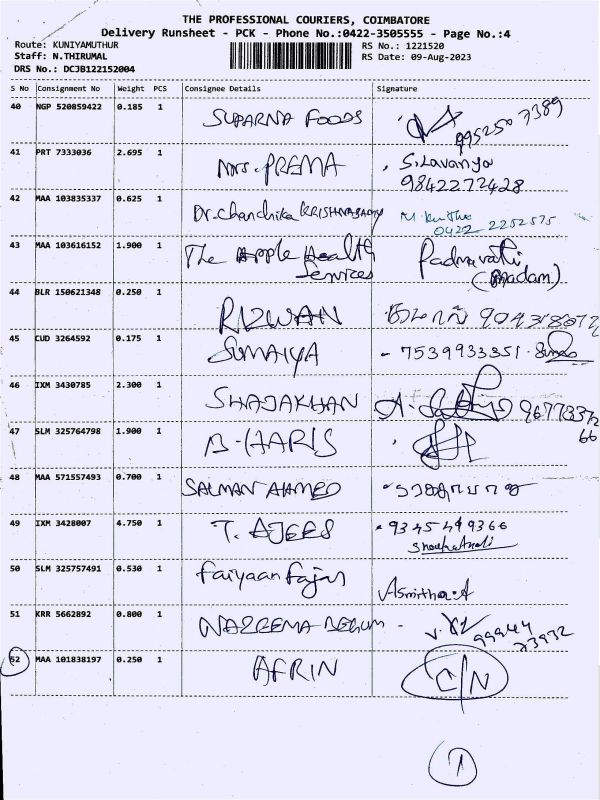 THE PROFESSIONAL COURIERS, COIMBATORE
Delivery Runsheet - PCK - Phone No.:0422-3505555 - Page No.:4
Route: KUNIYAMUTHUR RS No.: 1221520
Staff: N.THIRUMAL RS Date: 09-Aug-2023
DRS No.: DCJB122152004
S No Consignment No Weight PCS Consignee Details Signature
40 NGP 520859422 0.185 1 SUPARNA FOODS 9952507389
41 PRT 7333036 2.695 1 Mrs. PREMA S.Lavanya
9842272428
42 MAA 103835337 0.625 1 Dr. Chandrika KRISHNASAMY
0422 2252575
43 MAA 103616152 1.900 1 The Apple Health Padmavathi
Services (Madam)
44 BLR 150621348 0.250 1 RIZWAN
45 CUD 3264592 0.175 1 SUMAIYA - 7539933351
46 IXM 3430785 2.300 1 SHAJAKHAN
47 SLM 325764798 1.900 1 B. HARIS
48 MAA 571557493 0.700 1 SALMAN AHMED
49 IXM 3428007 4.750 1 T. AJEES
50 SLM 325757491 0.530 1 Faiyaan Fajar Asmitha.A
51 KRR 5662892 0.800 1 NAZEEMA BEGUM - 99944
73932
52 MAA 101838197 0.250 1 AFRIN C/N
1